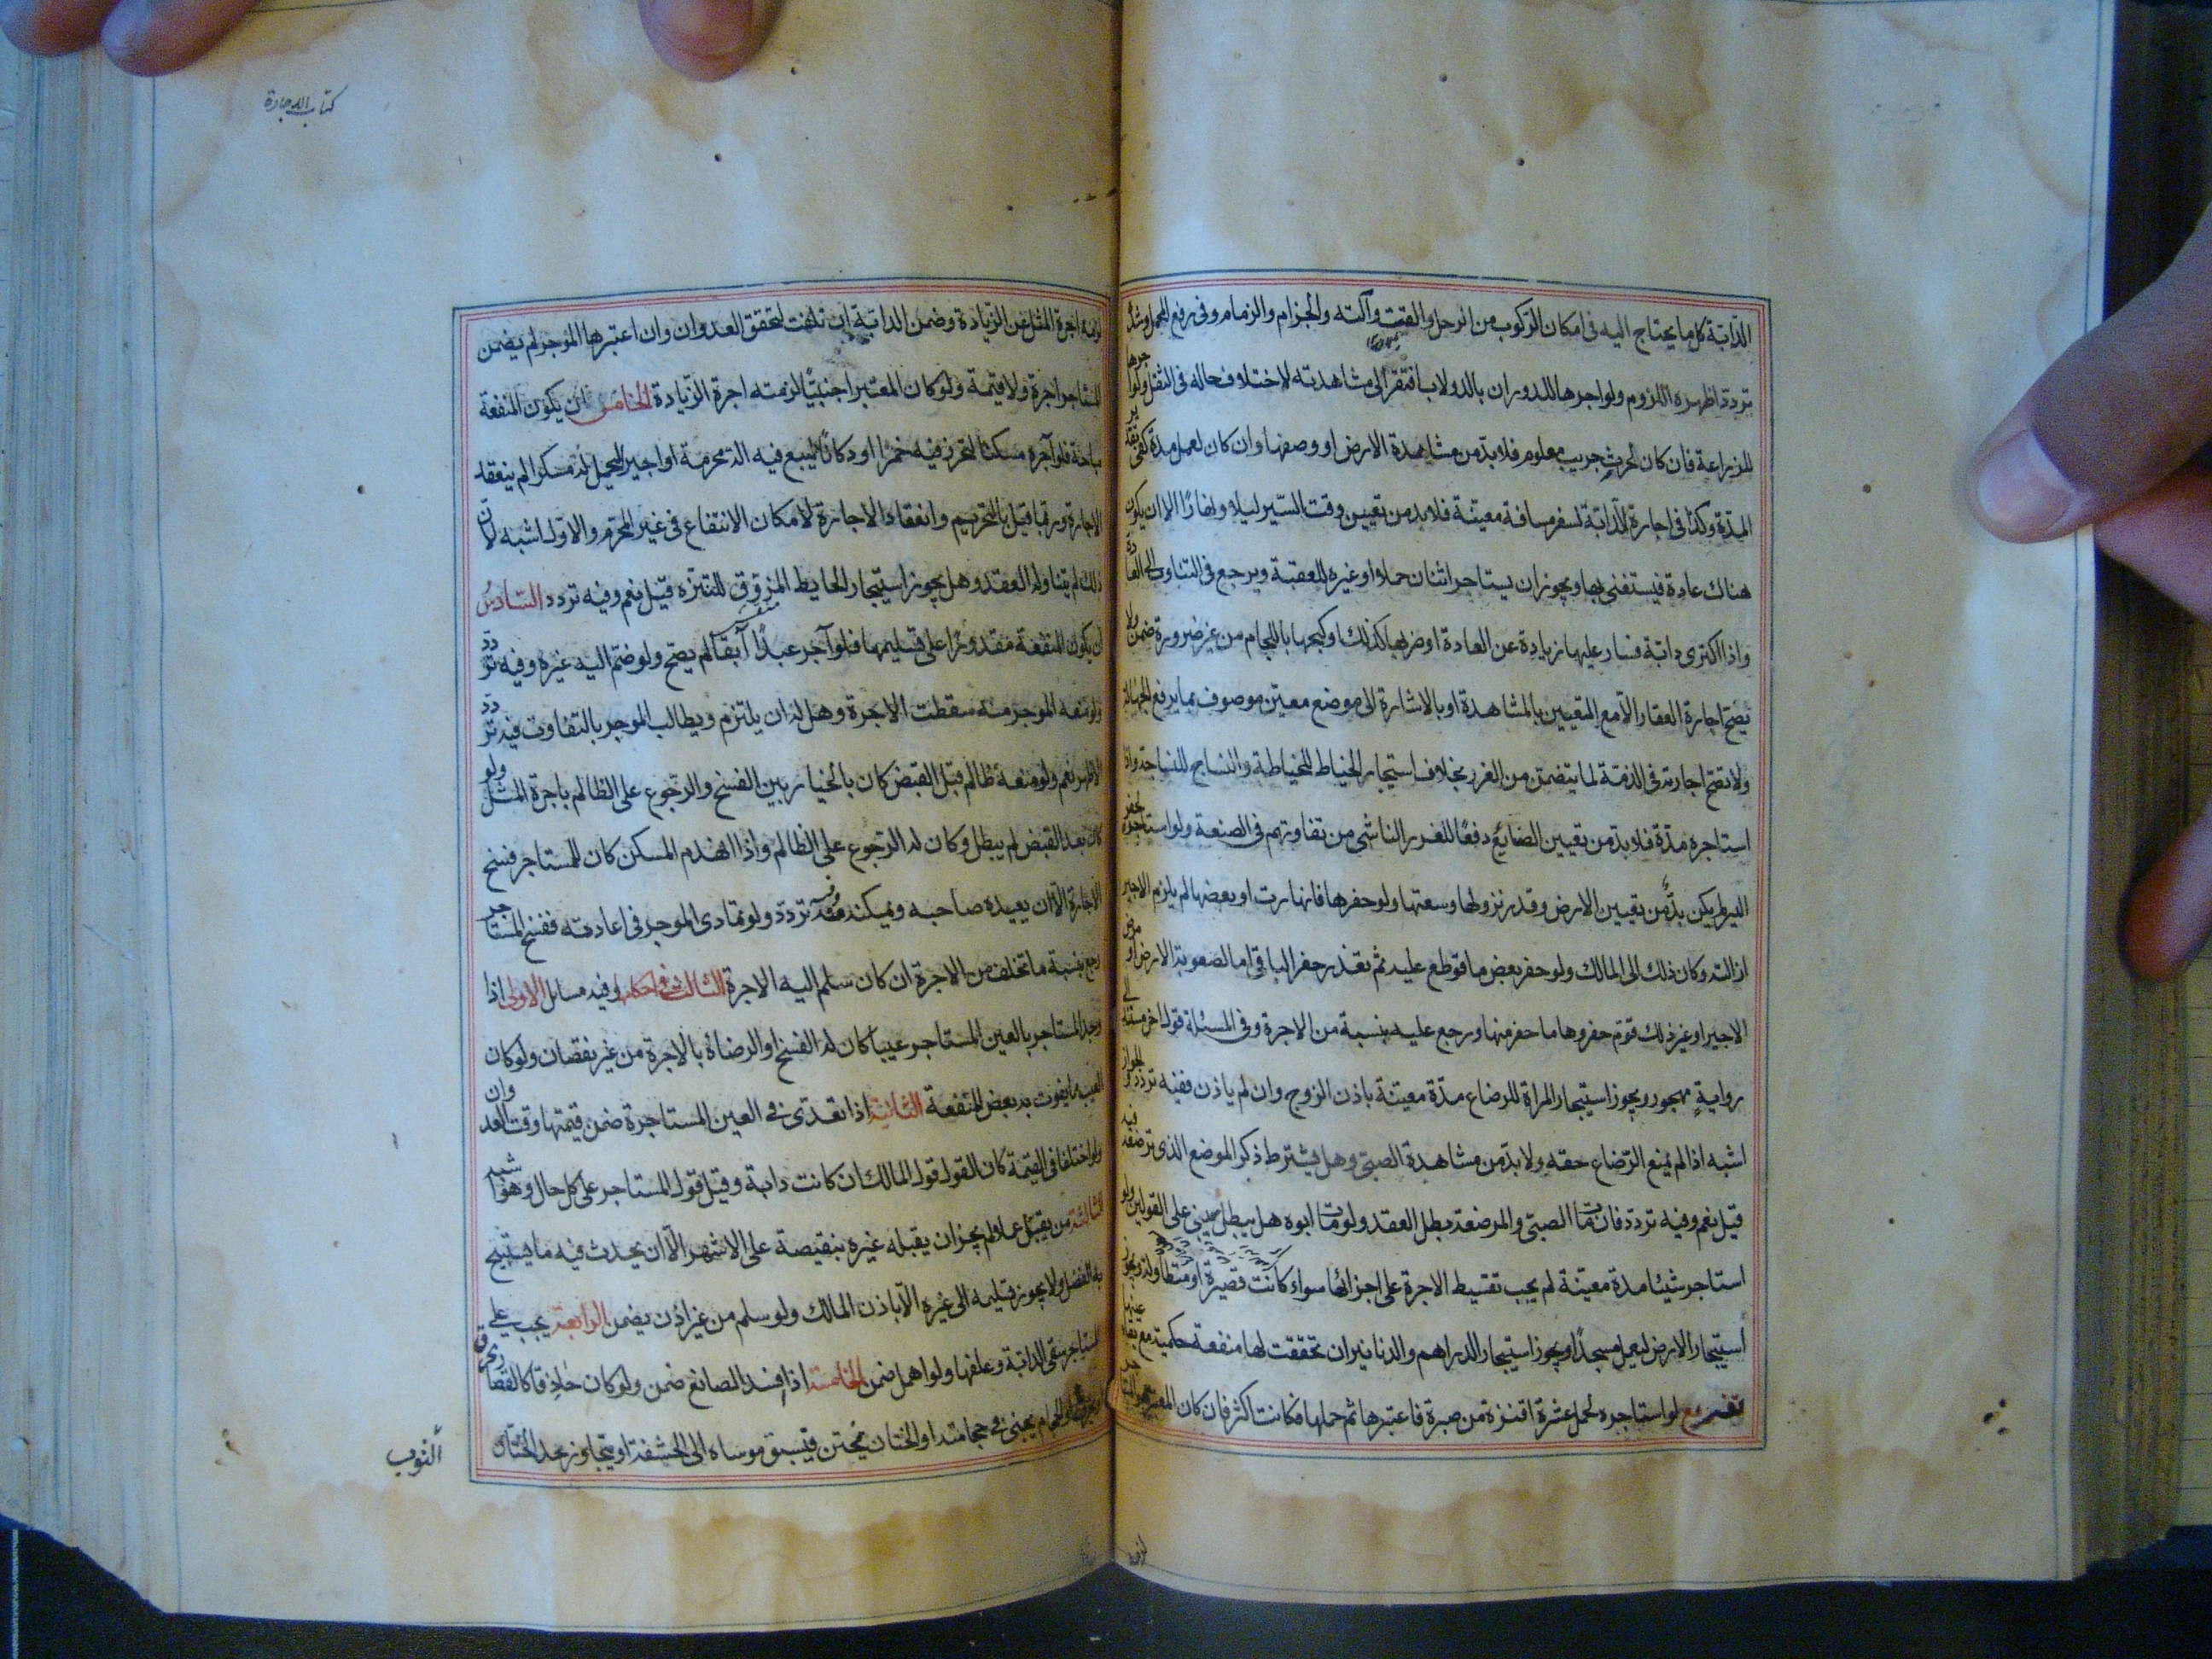 الدّابّة كل ما يحتاج اليه فى امكان الركوب من الرحل والقتب وآلته والحزام والزمام وفى رفع المحمل وشدّه
تردّد اظهره اللزوم ولو اجرها للدوران بالدولاب افتقر الى مشاهدته لاختلاف حاله فى الثقل ولو اجرها
للزراعة فان كان لحرث جريب معلوم فلا بدّ من مشاهدة الارض او وصفها وان كان لعمل مدة كفى تقدير
المدّة وكذا فى اجارة الدّابّة لسفر مسافة معيّنة فلا بد من تعيين وقت السّير ليلا ونهارًا الا ان يكون
هناك عادة فيستغنى بها ويجوز ان يستاجر اثنان حملا او غيره للعقبة ويرجع فى التناوب الى العادة
واذا اكترى دابّة فسار عليها زيادة عن العادة او ضربها كذلك او كبحها باللجام من غير ضرورة ضمن ولا
يصحّ اجارة العقار الّا مع التعيين بالمشاهدة او بالاشارة الى موضع معيّن موصوف بما يرفع الجهالة
ولا تصحّ اجارته فى الذمّة لما يتضمّن من الغرر بخلاف استيجار الخياط للخياطة والنساج للنساجة واذا
استاجره مدّة فلا بدّ من تعيين الصانع دفعًا للغرر الناشى من تفاوتهم فى الصنعة ولو استاجره لحفر
البير لم يكن بدّ من تعيين الارض وقدر نزولها وسعتها ولو حفرها فانهارت او بعضها لم يلزم الاجير
ازالته وكان ذلك الى المالك ولو حفر بعض ما قوطع عليه ثم تعذر حفر الباقى اما لصعوبة الارض او مرض
الاجير او غير ذلك قوّم حفرها وما حفر منها ورجع عليه بنسبة من الاجرة وفى المسئلة قول اخر مستند الى
رواية مهجورة ويجوز استيجار المراة للرضاع مدّة معيّنة باذن الزوج وان لم ياذن ففيه تردد والجواز
اشبه اذا لم يمنع الرّضاع حقه ولا بدّ من مشاهدة الصبىّ وهل يشترط ذكر الموضع الذى ترضعه فيه
قيل نعم وفيه تردّد فان مات الصبى والمرضعة بطل العقد ولو مات ابوه هل يبطل يبنى على القولين ولو
استاجر شيئا مدة معيّنة لم يجب تقسيط الاجرة على اجزائها سواء كانت قصيرة او متطاولة ويجوز
استيجار الارض ليعمل مسجدًا ويجوز استيجار الدراهم والدنانيران تحققت لها منفعة حكمية مع بقاء عينها
تفريع لو استاجره لحمل عشرة اقفزة من صبرة فاعتبرها ثم حملها فكانت اكثر فان كان المعتبر هو المستاجر
لزمه
كتاب الاجارة
لزمه اجرة المثل عن الزيادة وضمن الدابّة ان تلفت لتحقق العدوان وان اعتبرها الموجر لم يضمن
المستاجر اجرة ولا قيمة ولو كان المعتبر اجنبيًّا لزمته اجرة الزّيادة الخامس ان يكون المنفعة
مباحة فلو آجره مسكنا لتحرز فيه خمرًا او دكانًا ليبيع فيه الة محرمة او اجيرًا ليحمل له مسكرًا لم ينعقد
الاجارة وربما قيل بالتحريم وانعقاد الاجارة لامكان الانتفاع فى غير المحرّم والاول اشبه لان
ذلك لم يتناوله العقد وهل يجوز استيجار الحايط المزوّق للتنزّه قيل نعم وفيه تردد السّادس
ان يكون المنفعة مقدورًا على تسليمها فلو آجر عبدًا آبقًا لم يصحّ ولو ضمّ اليه غيره وفيه تردّد
ولو منعه الموجر منه سقطت الاجرة وهل له ان يلتزم ويطالب الموجر بالتفاوت فيه تردّد
الاظهر نعم ولو منعه ظالم قبل القبض كان بالخيار بين الفسخ والرّجوع على الظالم باجرة المثل ولو
كان بعد القبض لم يبطل وكان له الرّجوع على الظالم واذا انهدم المسكن كان للمستاجر فسخ
الاجارة الّا ان يعيده صاحبه ويمكنه وفيه تردّد ولو تمادى الموجر فى اعادته ففسخ المستاجر
رجع بنسبة ما تخلف من الاجرة ان كان سلم اليه الاجرة الثالث فى احكامها وفيه مسايل الاولى اذا
وجد المستاجر بالعين المستاجر عيبا كان له الفسخ او الرضاء بالاجرة من غير نقصان ولو كان
العيب مما يفوت به بعض المنفعة الثانية اذا تعدّى فى العين المستاجرة ضمن قيمتها وقت العدوان
ولو اختلفا فى القيمة كان القول قول المالك ان كانت دابة وقيل قول المستاجر على كل حال وهو اشبه
الثالثة من يقبل عملا لم يجز ان يقبله غيره بنقيصة على الاشهر الّا ان يحدث فيه ما يستبيح
به الفضل ولا يجوز تسليمه الى غيره الّا باذن المالك ولو سلم من غير اذن يضمن الرابعة يجب على
المستاجر سقى الدابّة وعلفها ولو اهمل ضمن الخامسة اذا افسد الصانع ضمن ولو كان حاذقا كالقصار يحرق
او الحجام يجنى فى حجامته او الختان يختن فيسبق موساه الى الحشفة او يتجاوز حد الختان
الثوب